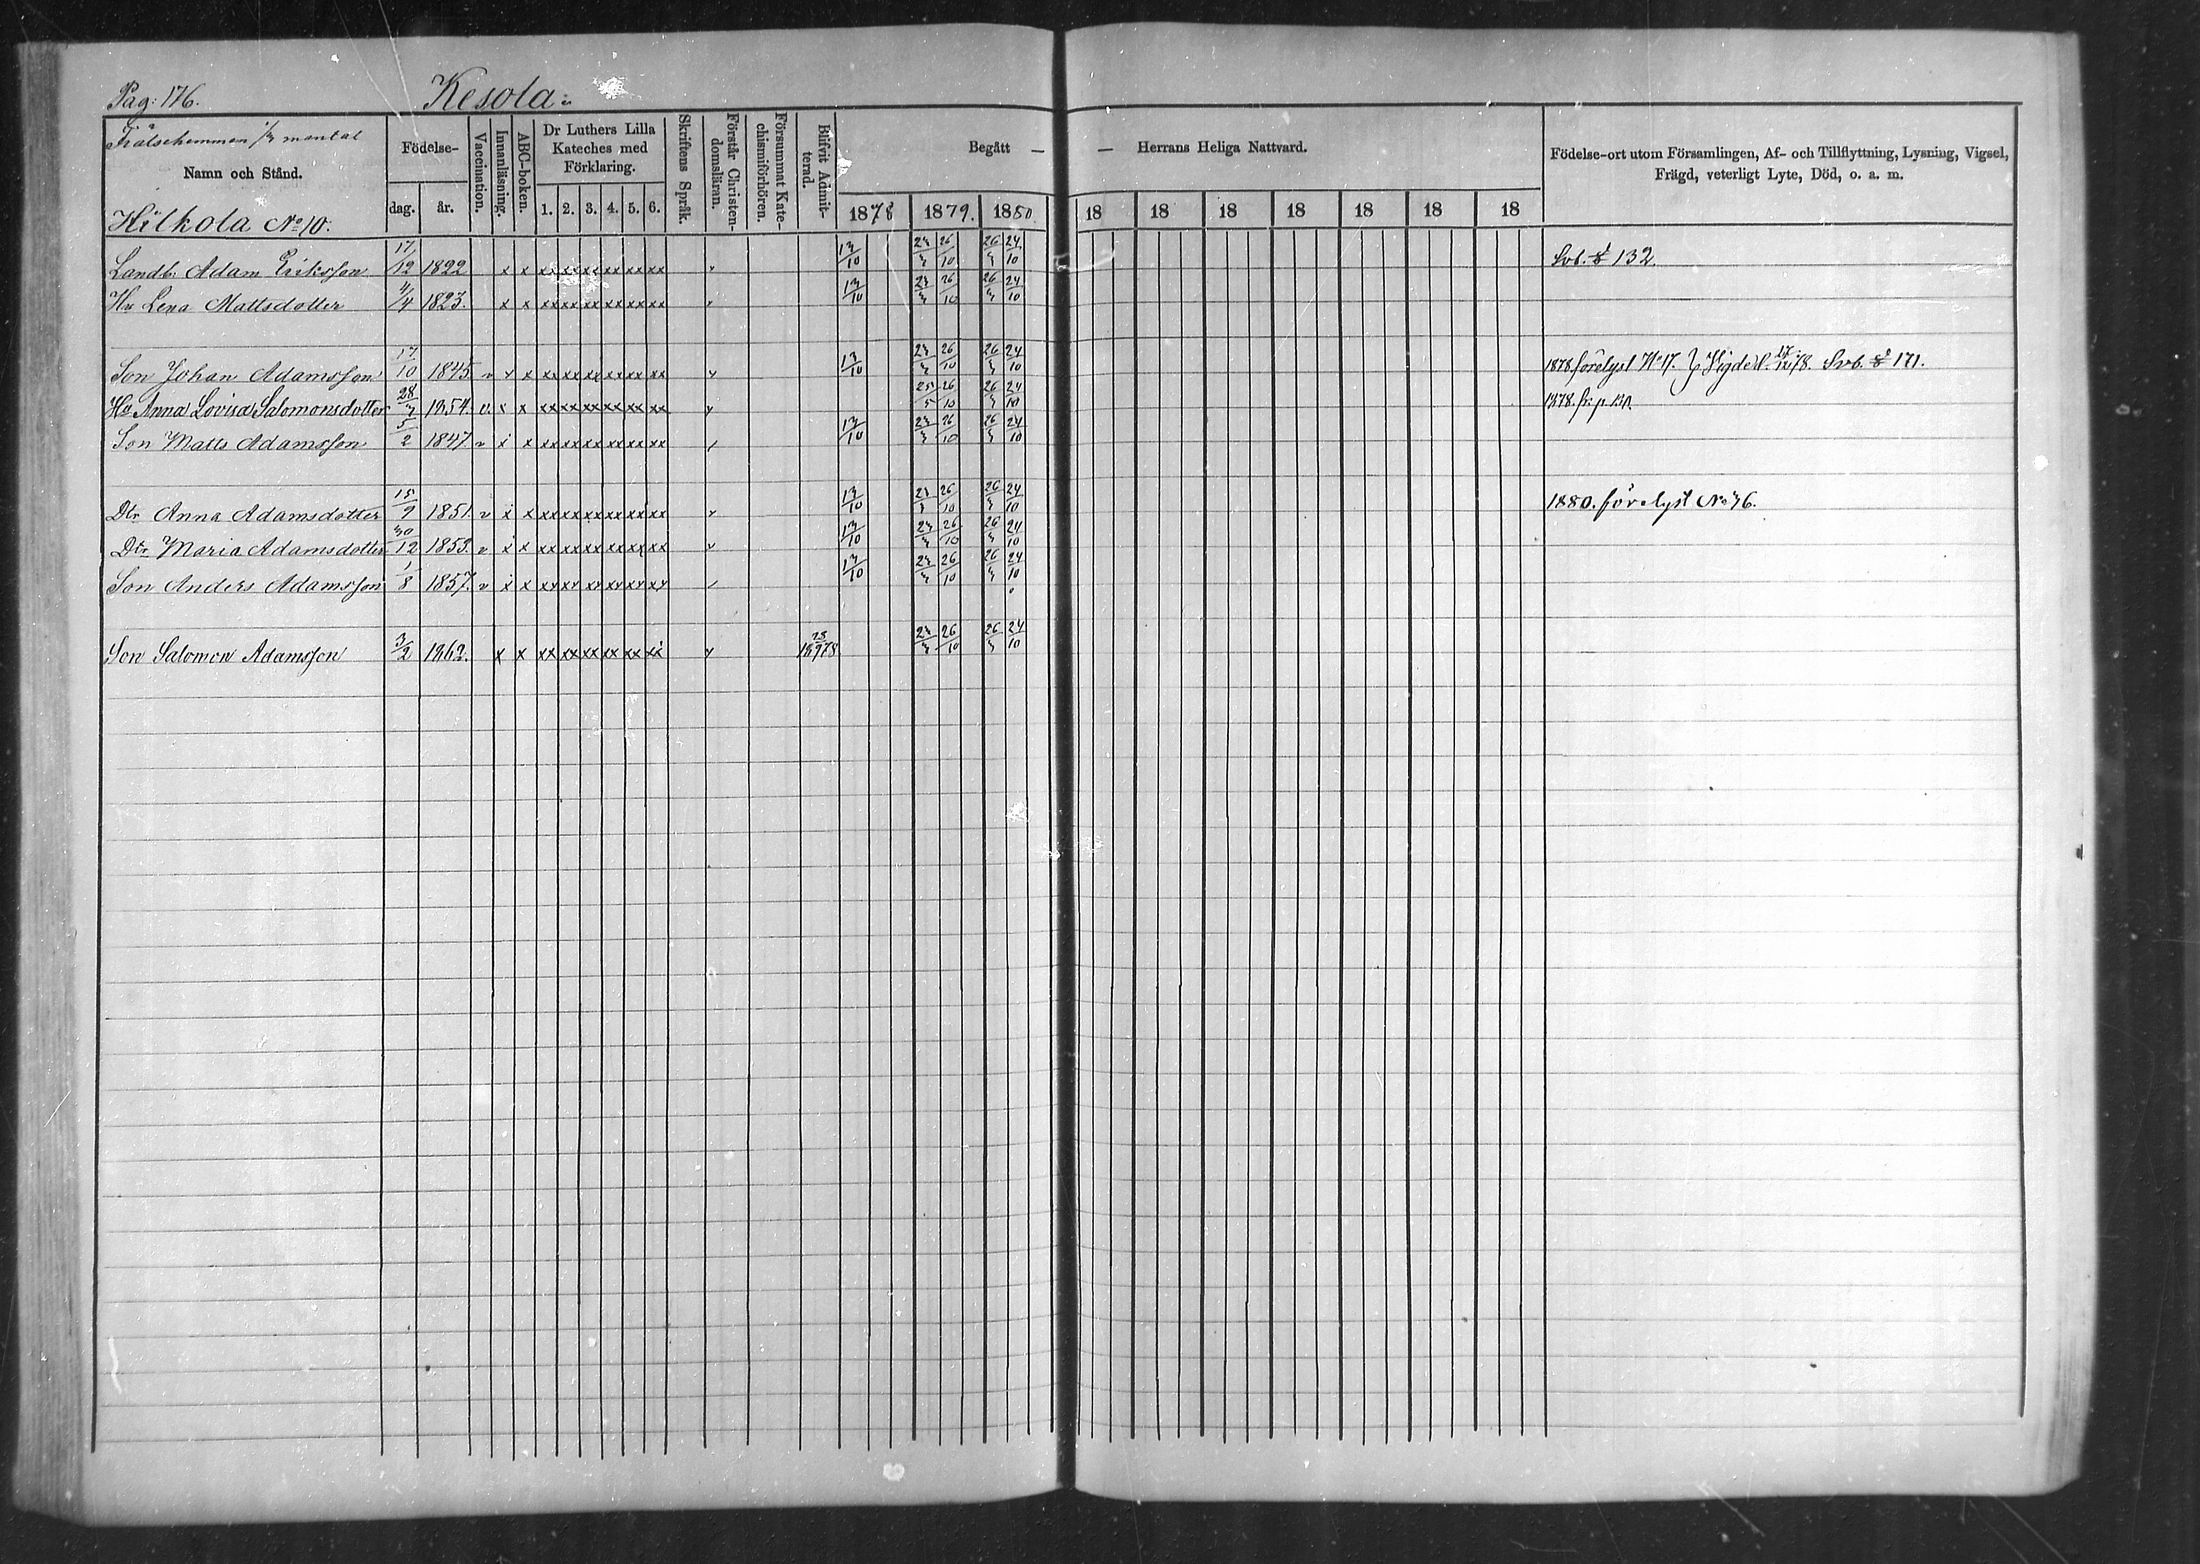 Pag: 176. Kesola
Frälsehemman mantal
Namn och Stånd.
Hilkola No 10.
Födelse-
dag. år.
Vaccination.
Innanläsning.
ABC-boken.
Dr Luthers Lilla
Kateches med
Förklaring.
1. 2. 3. 4. 5. 6.
Skriftens Språk.
Förstår Christen-
domsläran.
Försummat Kate-
chismiförhören.
Blifvit Admit-
terad.
Begått — — Herrans Heliga Nattvard.
1878 1879. 1880. 18 18 18 18 18 18 18
Födelse-ort utom Församlingen, Af- och Tillflyttning, Lysning, Vigsel,
Frägd, veterligt Lyte, Död, o. a. m.
Landb: Adam Eriksson 17/12 1822 x x xx xx xx xx xx xx 13/10 26/10 24/10 132
Hu Lena Mattsdotter 4/4 1823. x x xx xx xx xx xx xx 13/10 26/10 24/10
Son Johan Adamsson 17/10 1845 v x x xx xx xx xx xx xx 13/10 26/10 24/10 1878 förelyst No 17. 171.
Hu Anna Lovisa Salomonsdotter 1854. v. x x xx xx xx xx xx xx 26/10 24/10 1878 fr. p.
Son Matts Adamsson 5/2 1847. v x x xx xx xx xx xx xx 13/10 26/10 24/10
Dtr Anna Adamsdotter 15/9 1851. v x x xx xx xx xx xx xx 13/10 26/10 24/10 1880. förelyst No 76.
Dtr Maria Adamsdotter 30/12 1853. v x x xx xx xx xx xx xx 13/10 26/10 24/10
Son Anders Adamsson 1/8 1857. v x x xx xx xx xx xx xx 13/10 26/10 24/10
Son Salomon Adamsson 3/2 1862. x x xx xx xx xx xx xx 26/10 24/10